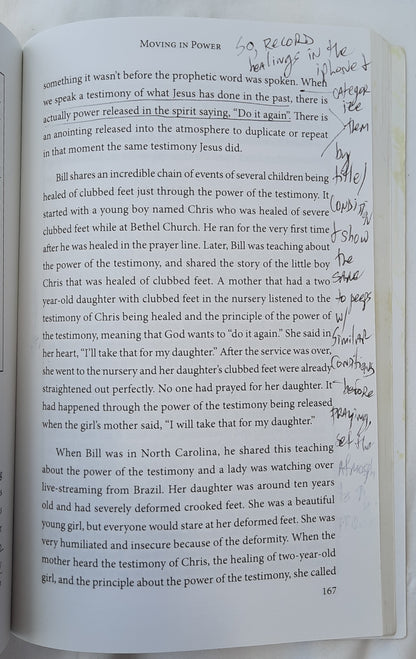 MOVING IN POWER
something it wasn't before the prophetic word was spoken. When
we speak a testimony of what Jesus has done in the past, there is
actually power released in the spirit saying, "Do it again". There is
an anointing released into the atmosphere to duplicate or repeat
in that moment the same testimony Jesus did.
Bill shares an incredible chain of events of several children being
healed of clubbed feet just through the power of the testimony. It
started with a young boy named Chris who was healed of severe
clubbed feet while at Bethel Church. He ran for the very first time
after he was healed in the prayer line. Later, Bill was teaching about
the power of the testimony, and shared the story of the little boy
Chris that was healed of clubbed feet. A mother that had a two
year-old daughter with clubbed feet in the nursery listened to the
testimony of Chris being healed and the principle of the power of
the testimony, meaning that God wants to "do it again." She said in
her heart, "I'll take that for my daughter." After the service was over,
she went to the nursery and her daughter's clubbed feet were already
straightened out perfectly. No one had prayed for her daughter. It
had happened through the power of the testimony being released
when the girl's mother said, "I will take that for my daughter."
When Bill was in North Carolina, he shared this teaching
about the power of the testimony and a lady was watching over
live-streaming from Brazil. Her daughter was around ten years
old and had severely deformed crooked feet. She was a beautiful
young girl, but everyone would stare at her deformed feet. She was
very humiliated and insecure because of the deformity. When the
mother heard the testimony of Chris, the healing of two-year-old
girl, and the principle about the power of the testimony, she called
167
So, RECORD
healings in the
iphone &
CATEGOR
IZE
THEM
by
title/
CONDITION
& show
the
SAME
to peeps
w/
SIMILAR
CONDITIONS
before
PRAYING,
set the
ATMOSPH